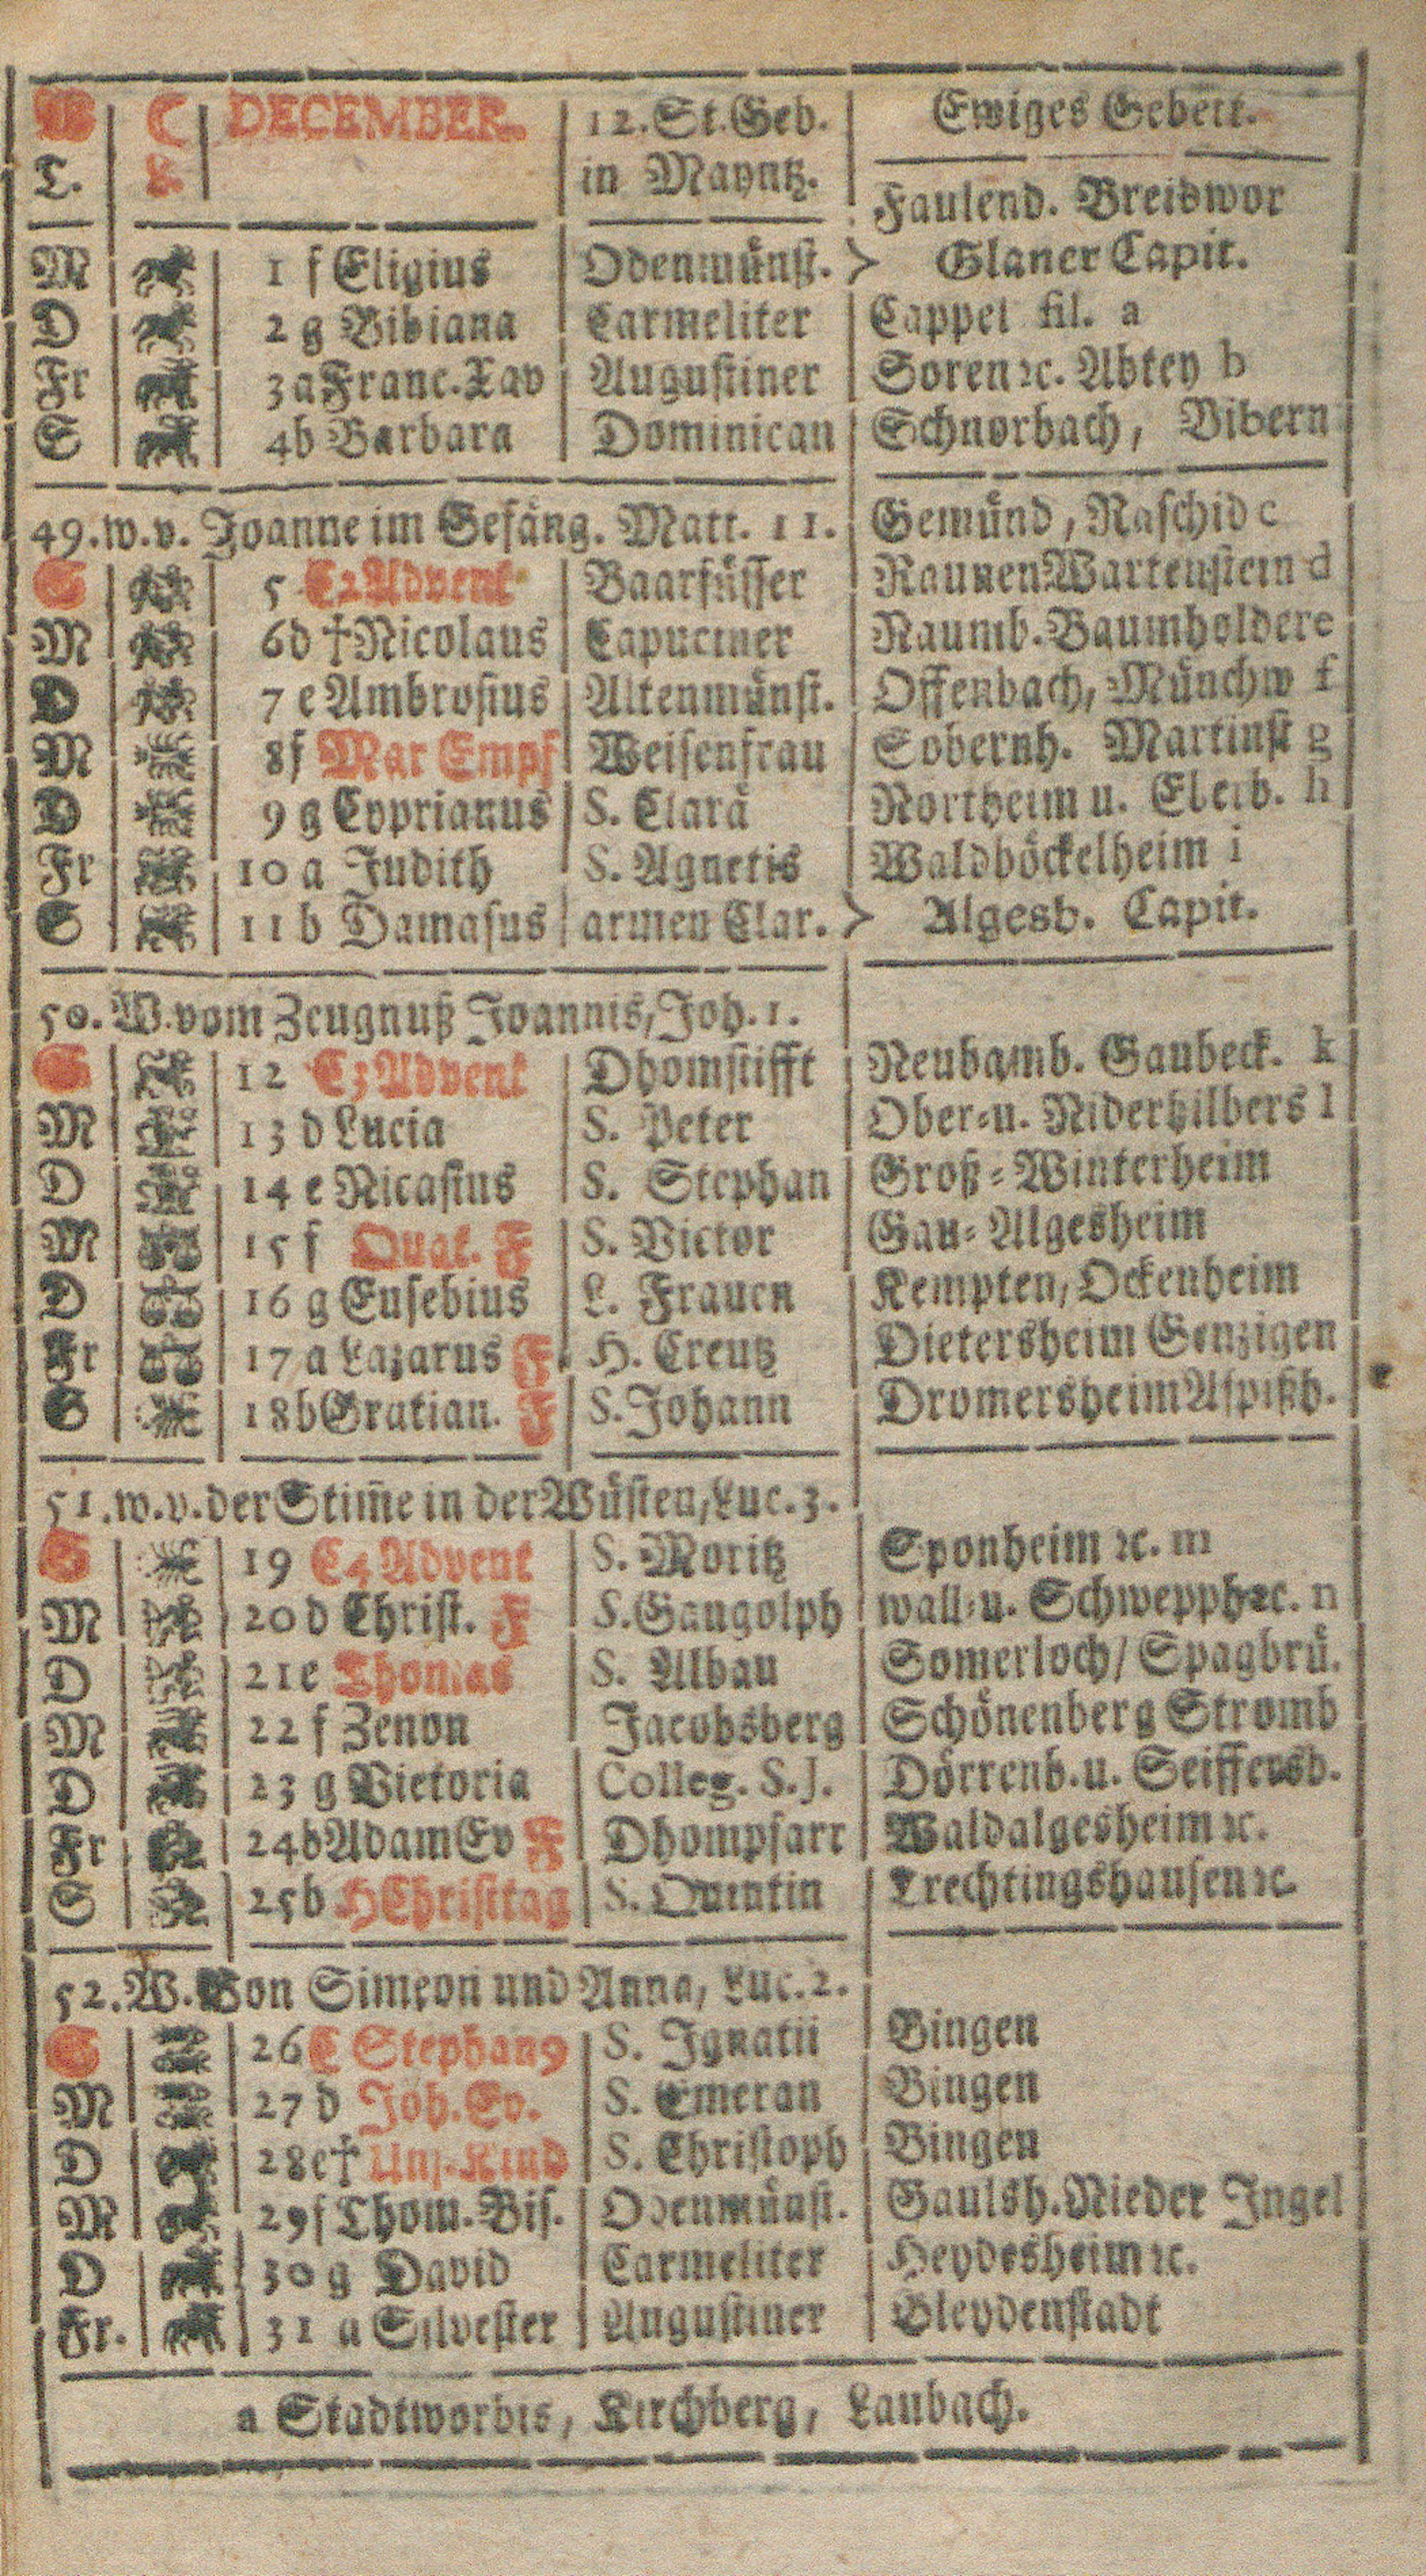 W C DECEMBER. 12. St. Geb. Ewiges Gebett.
T. L. in Mayntz. Faulend. Breidwor
M 1 f Eligius Odenmünst. > Glaner Capit.
D 2 g Bibiana Carmeliter Cappel fil. a
Fr 3 a Franc. Xav Augustiner Soren ꝛc. Abtey b
S 4 b Barbara Dominican Schnorbach, Bibern
49. w. v. Joanne im Gefäng. Matt. 11. Gemünd, Raschid c
S 5 C2 Advent Baarfüsser Raunen Wartenstein d
M 6 d † Nicolaus Capuciner Raumb. Baumholder e
D 7 e Ambrosius Altenmünst. Offenbach, Münchw f
M 8 f Mar Empf Weisenfrau Sobernh. Martinst g
D 9 g Cyprianus S. Clarä Northeim u. Eberb. h
Fr 10 a Judith S. Agnetis Waldböckelheim i
S 11 b Damasus armen Clar. > Algesb. Capit.
50. W. vom Zeugnuß Joannis, Joh. 1.
S 12 C3 Advent Dhomstifft Neubamb. Gaubeck. k
M 13 d Lucia S. Peter Ober-u. Niderhilbers l
D 14 e Nicasius S. Stephan Groß-Winterheim
M 15 f Quat. F S. Victor Gau-Algesheim
D 16 g Eusebius L. Frauen Kempten, Ockenheim
Fr 17 a Lazarus F H. Creutz Dietersheim Genzigen
S 18 b Gratian. F S. Johann Dromersheim Aspißh.
51. w. v. der Stim̄e in der Wüsten, Luc. 3.
S 19 C4 Advent S. Moritz Sponheim ꝛc. m
M 20 d Christ. F S. Gangolph wall-u. Schwepph ꝛc. n
D 21 e Thomas S. Alban Somerloch/ Spagbrü.
M 22 f Zenon Jacobsberg Schönenberg Stromb
D 23 g Victoria Colleg. S. J. Dörrenb. u. Seiffersb.
Fr 24 b Adam Ev F Dhompfarr Waldalgesheim ꝛc.
S 25 b H Christtag S. Quintin Trechtingshausen ꝛc.
52. W. Von Simeon und Anna, Luc. 2.
S 26 C Stephan9 S. Ignatii Bingen
M 27 d Joh. Ev. S. Emeran Bingen
D 28 e † Uns. Kind S. Christoph Bingen
M 29 f Thom. Bis. Odenmünst. Gaulsh. Nieder Ingel
D 30 g David Carmeliter Heydesheim ꝛc.
Fr. 31 a Silvester Augustiner Bleydenstadt
a Stadtworbis, Kirchberg, Laubach.